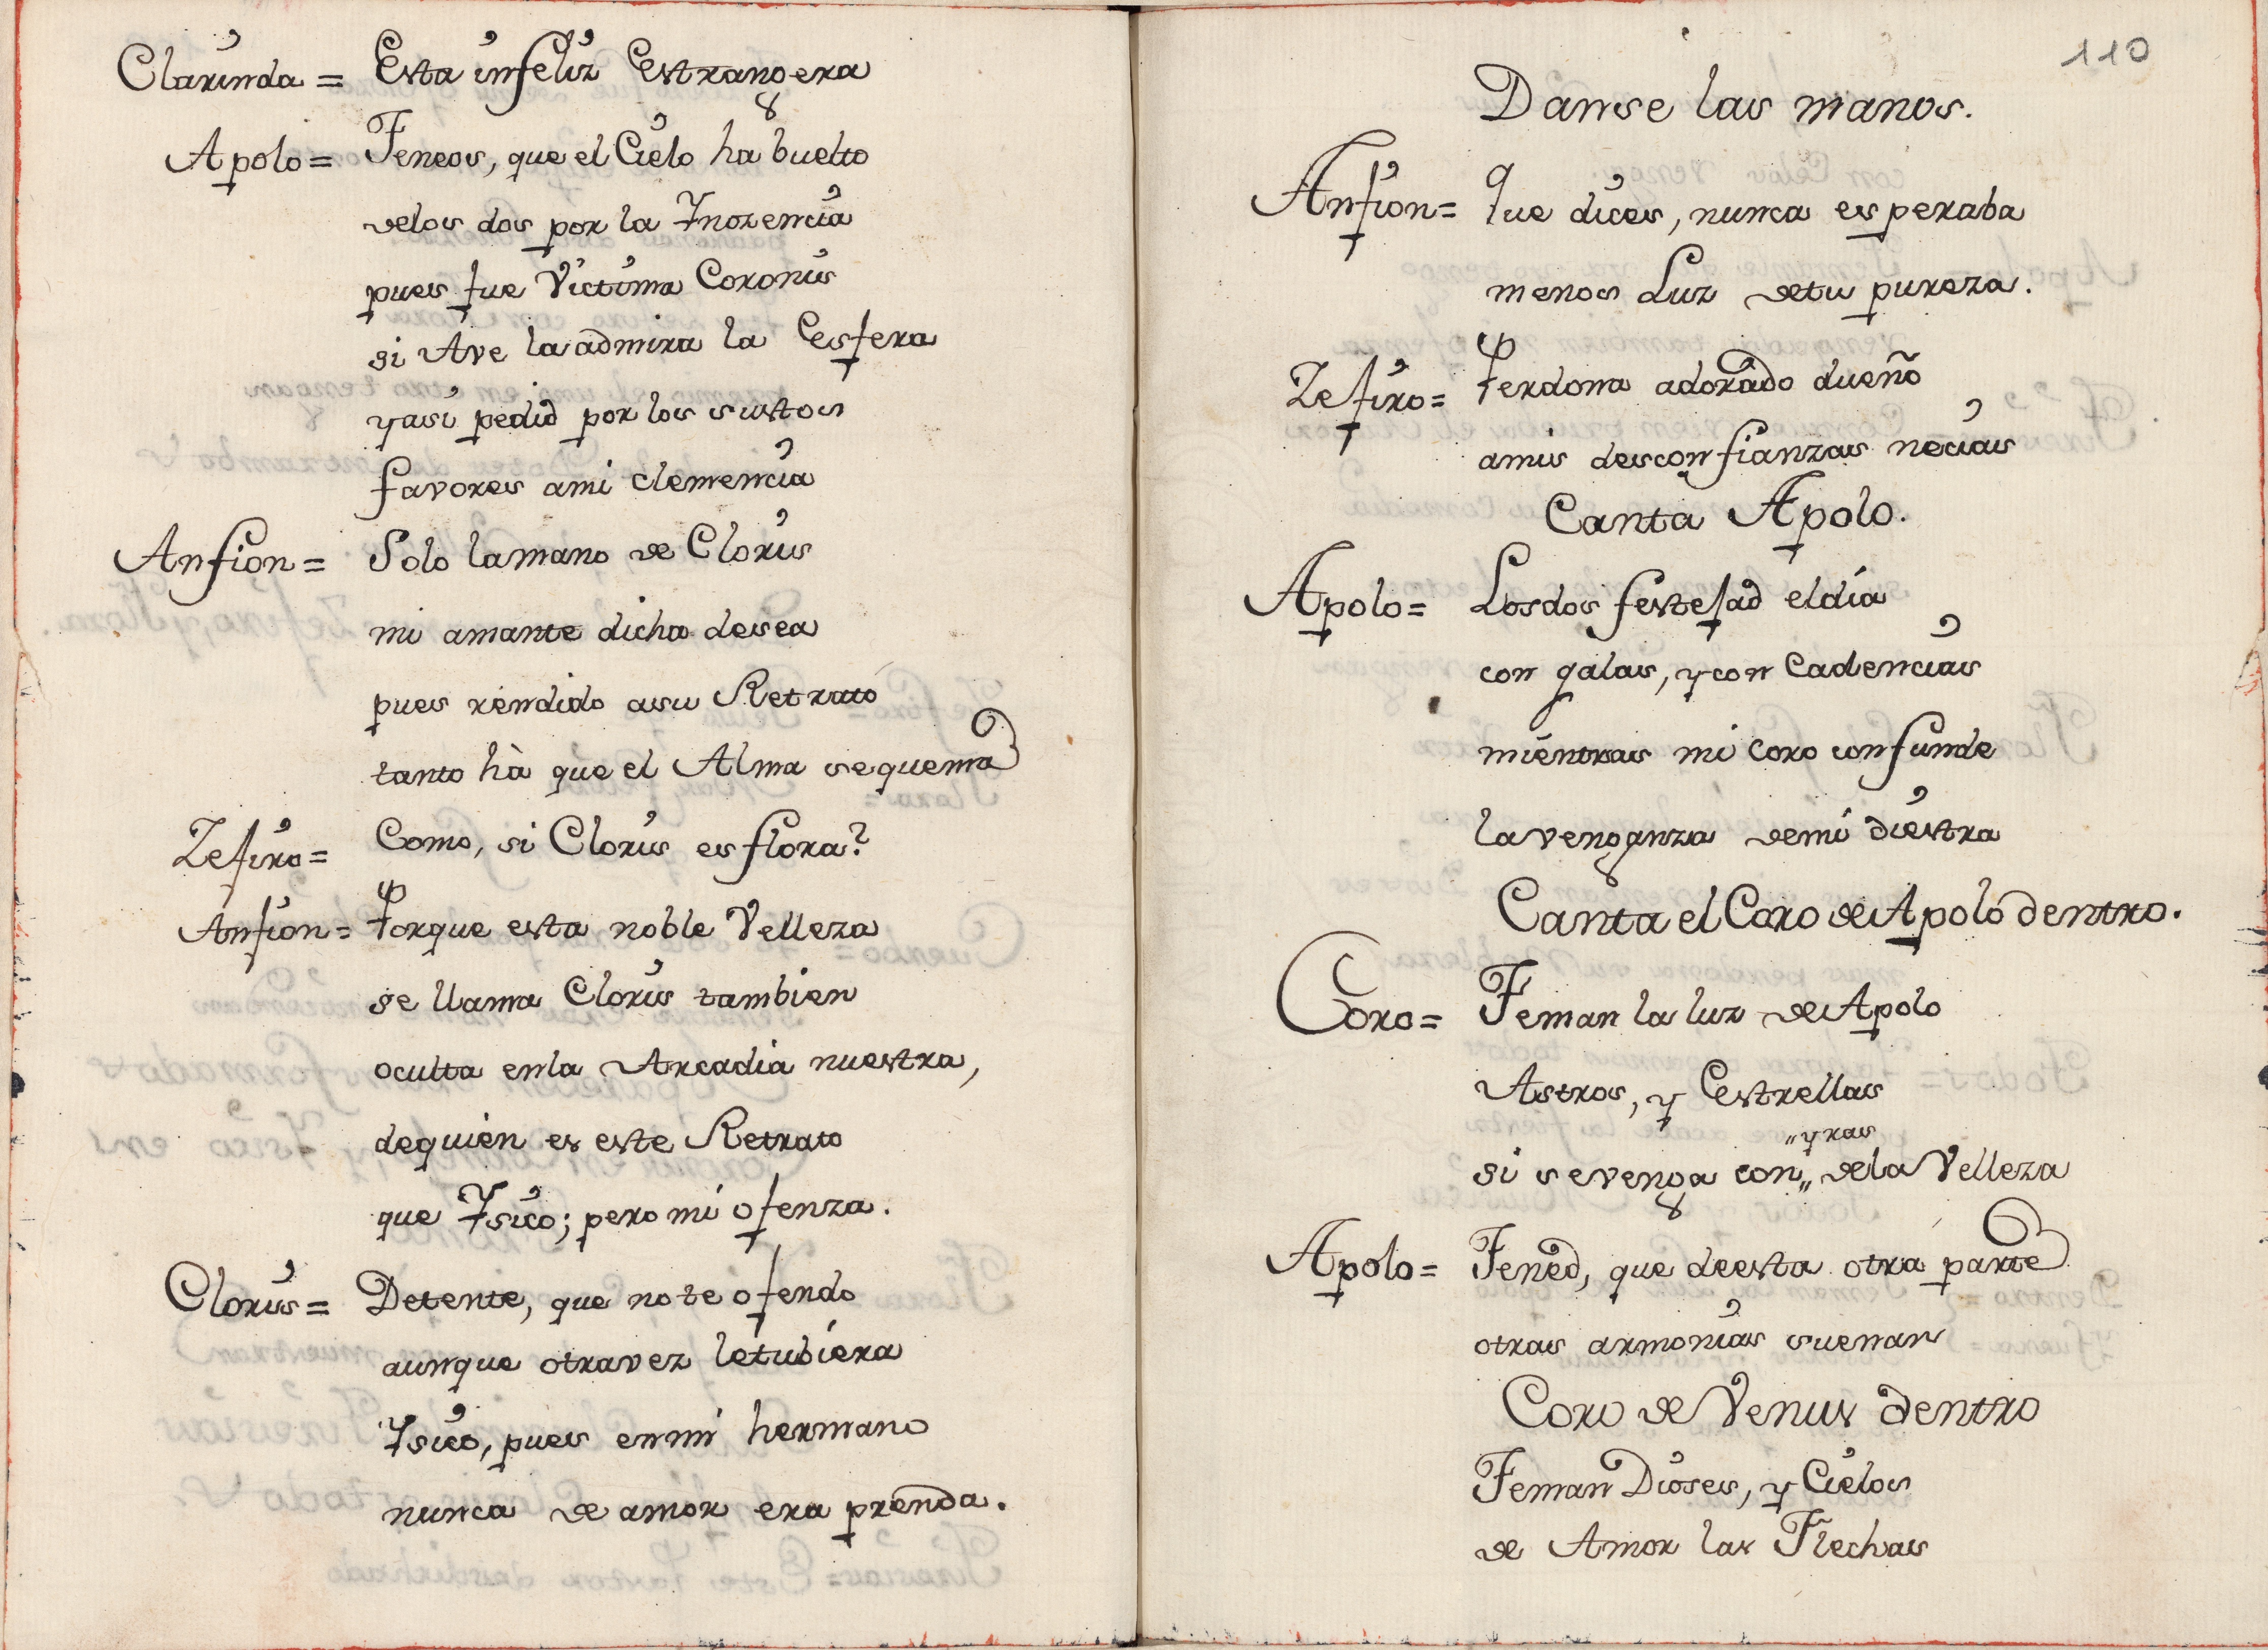 Clarinda = Esta infeliz Estrangera
Apolo = Teneos, que el Cielo ha buelto
velos dos por la Ynozencia
pues fue Victima Coronis
si Ave la admira la Esfera
yasi pedid por los sustos
favores ami clemencia
Anfion = Solo lamano de Cloris
mi amante dicha desea
pues rendido asu Retrato
tanto hà que el Alma sequema
Zefiro = Como, si Cloris es flora?
Anfion = Porque esta noble Velleza
se llama Cloris tambien
oculta enla Arcadia nuestra,
dequien es este Retrato
que Ysico; pero mi ofenza.
Cloris = Detente, que no te ofendo
aunque otravez letubiera
Ysico, pues enmi hermano
nunca de amor era prenda.
110
Danse las manos.
Anfion = Que dices, nunca esperaba
menos Luz detu pureza.
Zefiro = Perdona adorado dueño
amis desconfianzas necias
Canta Apolo.
Apolo = Losdos festejad eldía
con galas, y con Cadencias
mientras mi coro confunde
lavenganza demi diestra
Canta el Coro de Apolo dentro.
Coro = Teman la luz de Apolo
Astros, y Estrellas
"yras
si sevenga con,, dela Velleza
Apolo = Tened, que deesta otra parte
otras armonias suenan
Coro de Venus dentro
Teman Dioses, y Cielos
de Amor las Flechas